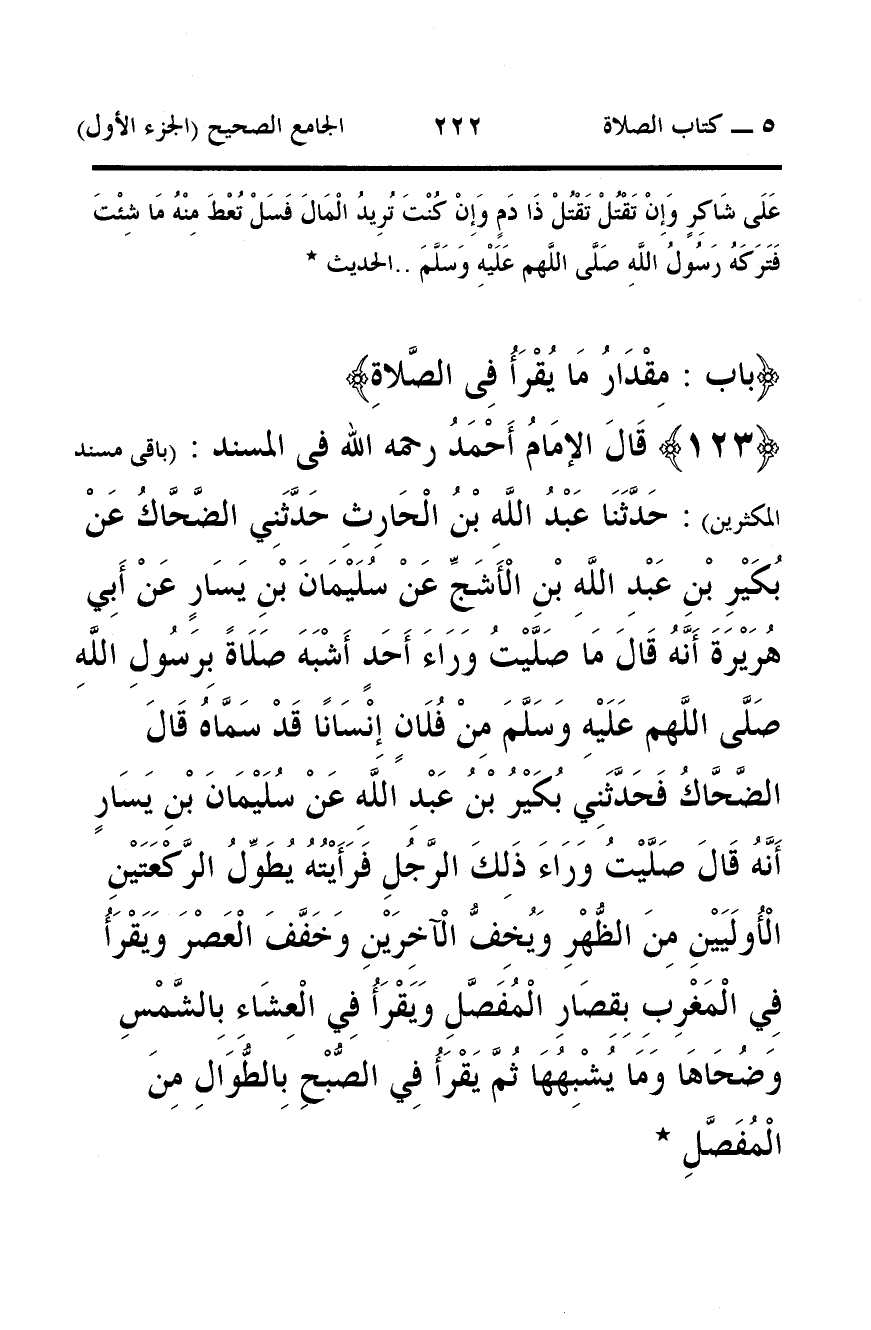 ٥ ــ كتاب الصلاة ٢٢٢ الجامع الصحيح (الجزء الأول)
عَلَى شَاكِرٍ وَإِنْ تَقْتُلْ تَقْتُلْ ذَا دَمٍ وَإِنْ كُنْتَ تُرِيدُ الْمَالَ فَسَلْ تُعْطَ مِنْهُ مَا شِئْتَ
فَتَرَكَهُ رَسُولُ اللَّهِ صَلَّى اللَّهم عَلَيْهِ وَسَلَّمَ ..الحديث *
﴿باب : مِقْدَارُ مَا يُقْرَأُ فِى الصَّلاةِ﴾
﴿١٢٣﴾ قَالَ الإمَامُ أَحْمَدُ رحمه الله فى المسند : (باقى مسند
المكثرين) : حَدَّثَنَا عَبْدُ اللَّهِ بْنُ الْحَارِثِ حَدَّثَنِي الضَّحَّاكُ عَنْ
بُكَيْرِ بْنِ عَبْدِ اللَّهِ بْنِ الْأَشَجِّ عَنْ سُلَيْمَانَ بْنِ يَسَارٍ عَنْ أَبِي
هُرَيْرَةَ أَنَّهُ قَالَ مَا صَلَّيْتُ وَرَاءَ أَحَدٍ أَشْبَهَ صَلَاةً بِرَسُولِ اللَّهِ
صَلَّى اللَّهم عَلَيْهِ وَسَلَّمَ مِنْ فُلَانٍ إِنْسَانًا قَدْ سَمَّاهُ قَالَ
الضَّحَّاكُ فَحَدَّثَنِي بُكَيْرُ بْنُ عَبْدِ اللَّهِ عَنْ سُلَيْمَانَ بْنِ يَسَارٍ
أَنَّهُ قَالَ صَلَّيْتُ وَرَاءَ ذَلِكَ الرَّجُلِ فَرَأَيْتُهُ يُطَوِّلُ الرَّكْعَتَيْنِ
الْأُولَيَيْنِ مِنَ الظُّهْرِ وَيُخِفُّ الْآخِرَيْنِ وَخَفَّفَ الْعَصْرَ وَيَقْرَأُ
فِي الْمَغْرِبِ بِقِصَارِ الْمُفَصَّلِ وَيَقْرَأُ فِي الْعِشَاءِ بِالشَّمْسِ
وَضُحَاهَا وَمَا يُشْبِهُهَا ثُمَّ يَقْرَأُ فِي الصُّبْحِ بِالطُّوَالِ مِنَ
الْمُفَصَّلِ *